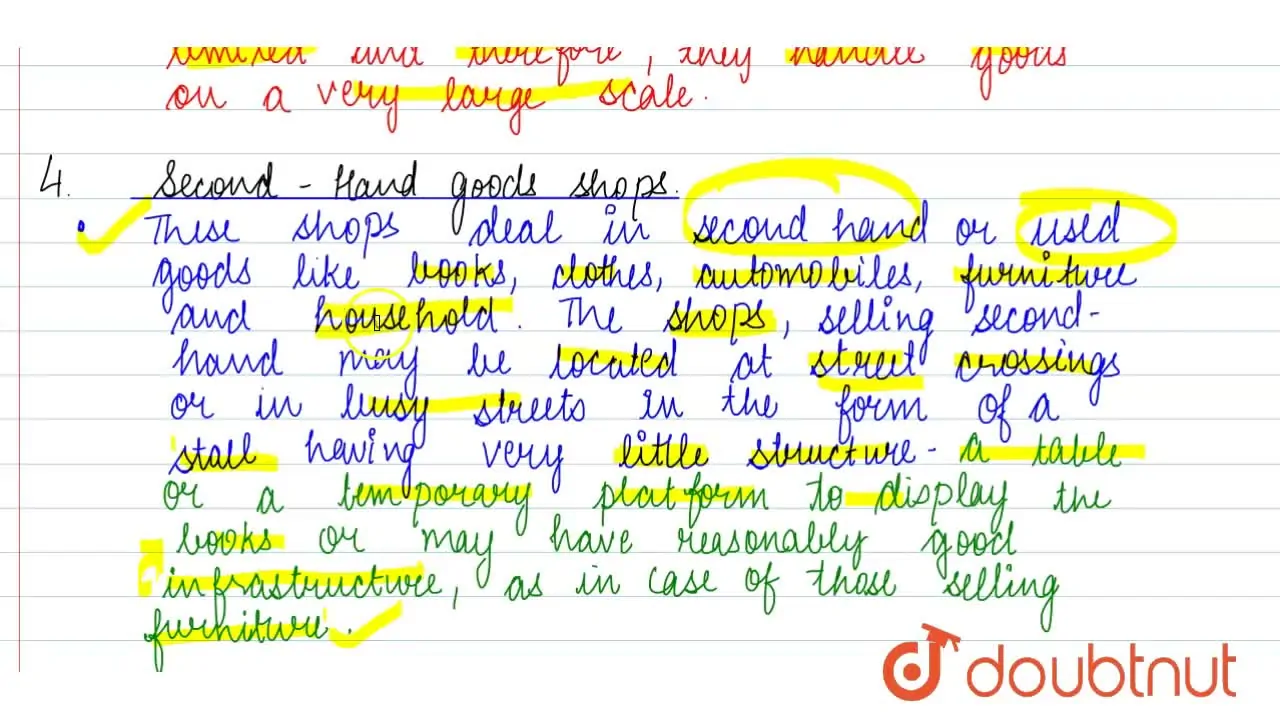 limited and therefore, they handle goods
on a very large scale.
4. Second-Hand goods shops.
• These shops deal in second hand or used
goods like books, clothes, automobiles, furniture
and household. The shops, selling second-
hand may be located at street crossings
or in busy streets in the form of a
stall having very little structure - a table
or a temporary platform to display the
books or may have reasonably good
infrastructure, as in case of those selling
furniture.
doubtnut